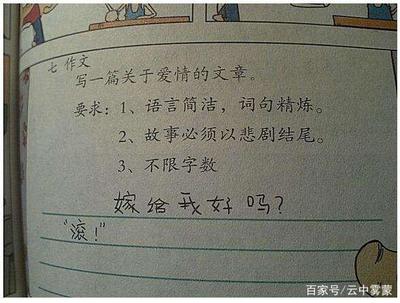 七 作文
写一篇关于爱情的文章。
要求：1、语言简洁，词句精炼。
2、故事必须以悲剧结尾。
3、不限字数
嫁给我好吗？
“滚！”
百家号/云中雾蒙